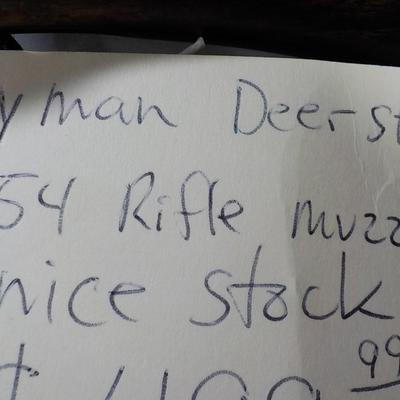 yman Deer-st
54 Rifle muzz
nice stock
499 99